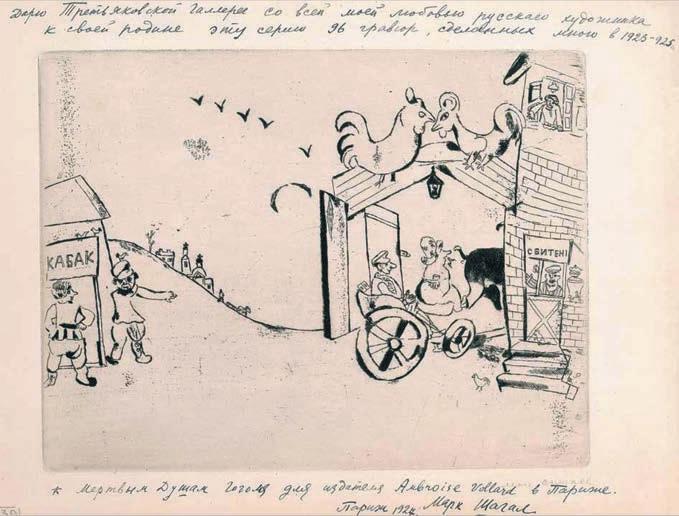 Дарю Третьяковской Галлерее со всей моей любовью русскаго художника
к своей родине эту серию 96 гравюр, сделанных мною в 1923-925.
КАБАК
СБИТЕНЬ
* Мертвым Душам Гоголя для издателя Ambroise Vollard в Париже.
Париж 1924. Марк Шагал